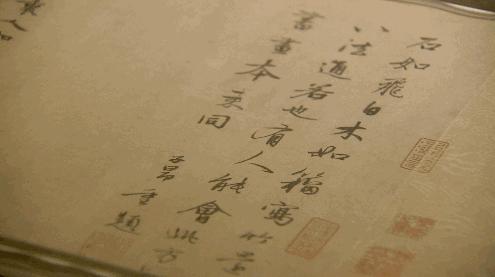 石如飛白木如籀寫竹
八法通若也有人能會此方
書畫本來同
子昂重題